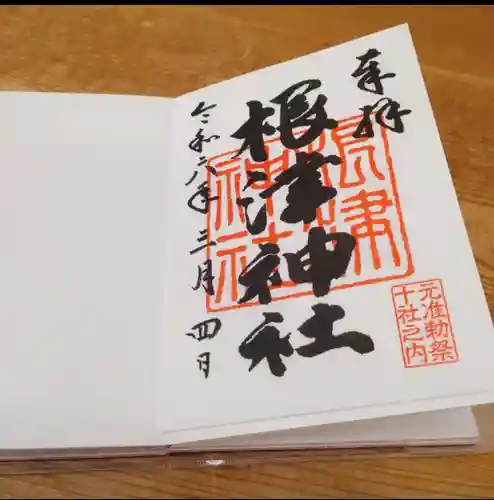 奉拝
根津神社
令和六年三月四日
根津
神社
元准勅祭
十社之内